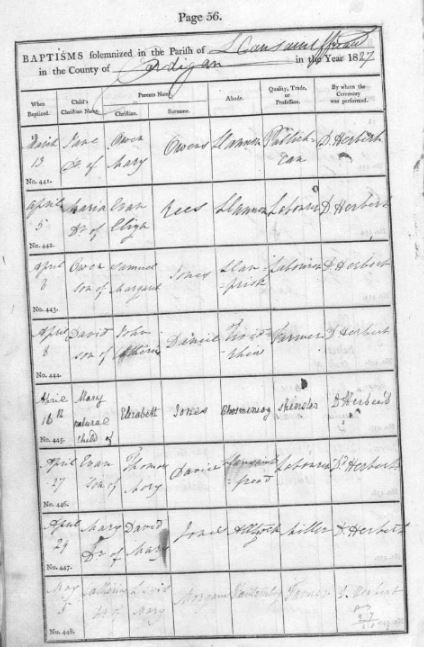 Page 56.
BAPTISMS solemnized in the Parish of Llansaintffraed
in the County of Cardigan in the Year 1827
When Baptized.
Child's Christian Name.
Parents Name.
Christian.
Surname.
Abode.
Quality, Trade, or Profession.
By whom the Ceremony was performed.
March Jane Owen Owens Llannon D. Herbert
13 Dr of Mary
No. 441.
April Maria Evan Rees Llannon Labourer D Herbert
5 Dr of Eliza
No. 442.
April Owen Samuel Jones Llan Labourer D. Herbert
8 son of Margaret
No. 443.
April David John Daniel Farmer D Herbert
8 son of
No. 444.
April Mary Elizabeth Jones spinster D Herbert
16th natural
No. 445. child of
April Evan Thomas Davies Llansaint Labourer D. Herbert
27 Son of Mary
No. 446.
April Mary David Jones Miller D. Herbert
29 Dr of Mary
No. 447.
May Morgan Farmer D. Herbert
5 Dr of Mary
No. 448.